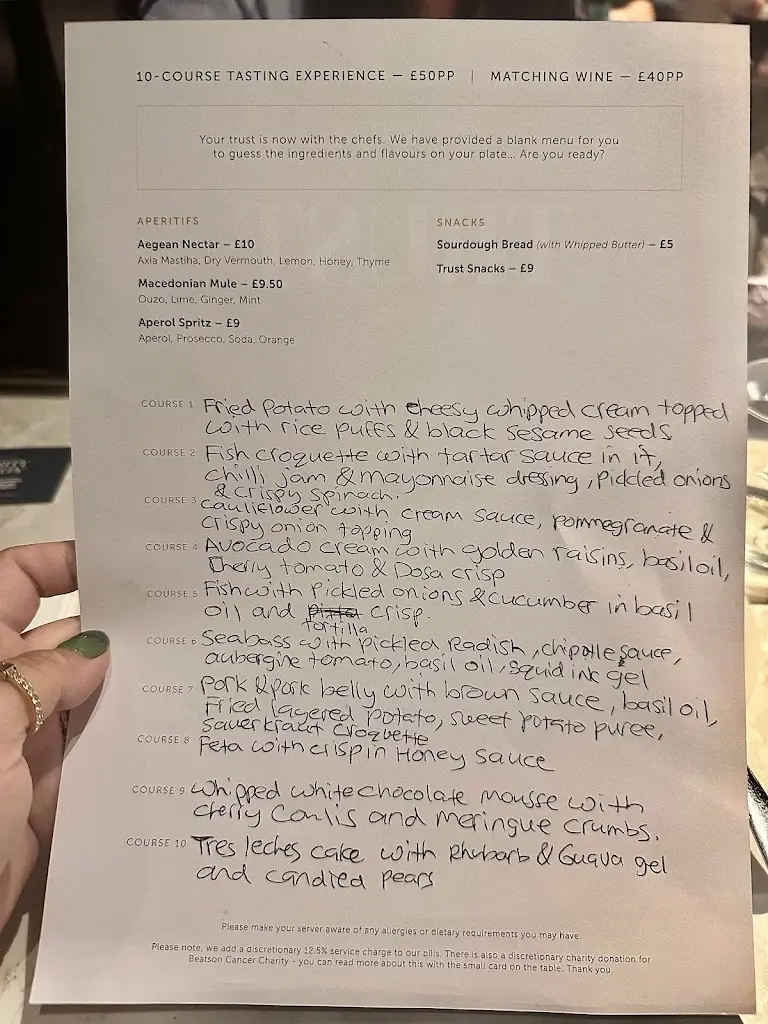 10-COURSE TASTING EXPERIENCE — £50PP | MATCHING WINE — £40PP
Your trust is now with the chefs. We have provided a blank menu for you
to guess the ingredients and flavours on your plate... Are you ready?
APERITIFS
Aegean Nectar – £10
Axia Mastiha, Dry Vermouth, Lemon, Honey, Thyme
Macedonian Mule – £9.50
Ouzo, Lime, Ginger, Mint
Aperol Spritz – £9
Aperol, Prosecco, Soda, Orange
SNACKS
Sourdough Bread (with Whipped Butter) – £5
Trust Snacks – £9
COURSE 1 Fried Potato with cheesy whipped cream topped
with rice puffs & black sesame seeds
COURSE 2 Fish croquette with tartar sauce in it,
chilli jam & mayonnaise dressing, Pickled onions
& crispy spinach.
COURSE 3 cauliflower with cream sauce, pommegranate &
crispy onion topping
COURSE 4 Avocado cream with golden raisins, basil oil,
Cherry tomato & Dosa crisp
COURSE 5 Fish with Pickled onions & cucumber in basil
oil and pitta crisp.
tortilla
COURSE 6 Seabass with pickled Radish, chipotle sauce,
aubergine tomato, basil oil, squid ink gel
COURSE 7 Pork & pork belly with brown sauce, basil oil,
Fried layered potato, sweet potato puree,
sauerkraut croquette
COURSE 8 Feta with crisp in Honey sauce
COURSE 9 Whipped white chocolate mousse with
cherry Coulis and meringue crumbs.
COURSE 10 Tres leches cake with Rhubarb & Guava gel
and candied pears
Please make your server aware of any allergies or dietary requirements you may have.
Please note, we add a discretionary 12.5% service charge to our bills. There is also a discretionary charity donation for
Beatson Cancer Charity - you can read more about this with the small card on the table. Thank you.